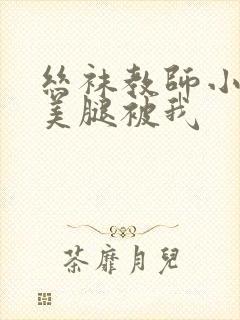 絲袜教師小
美腿被我
荼靡月兒